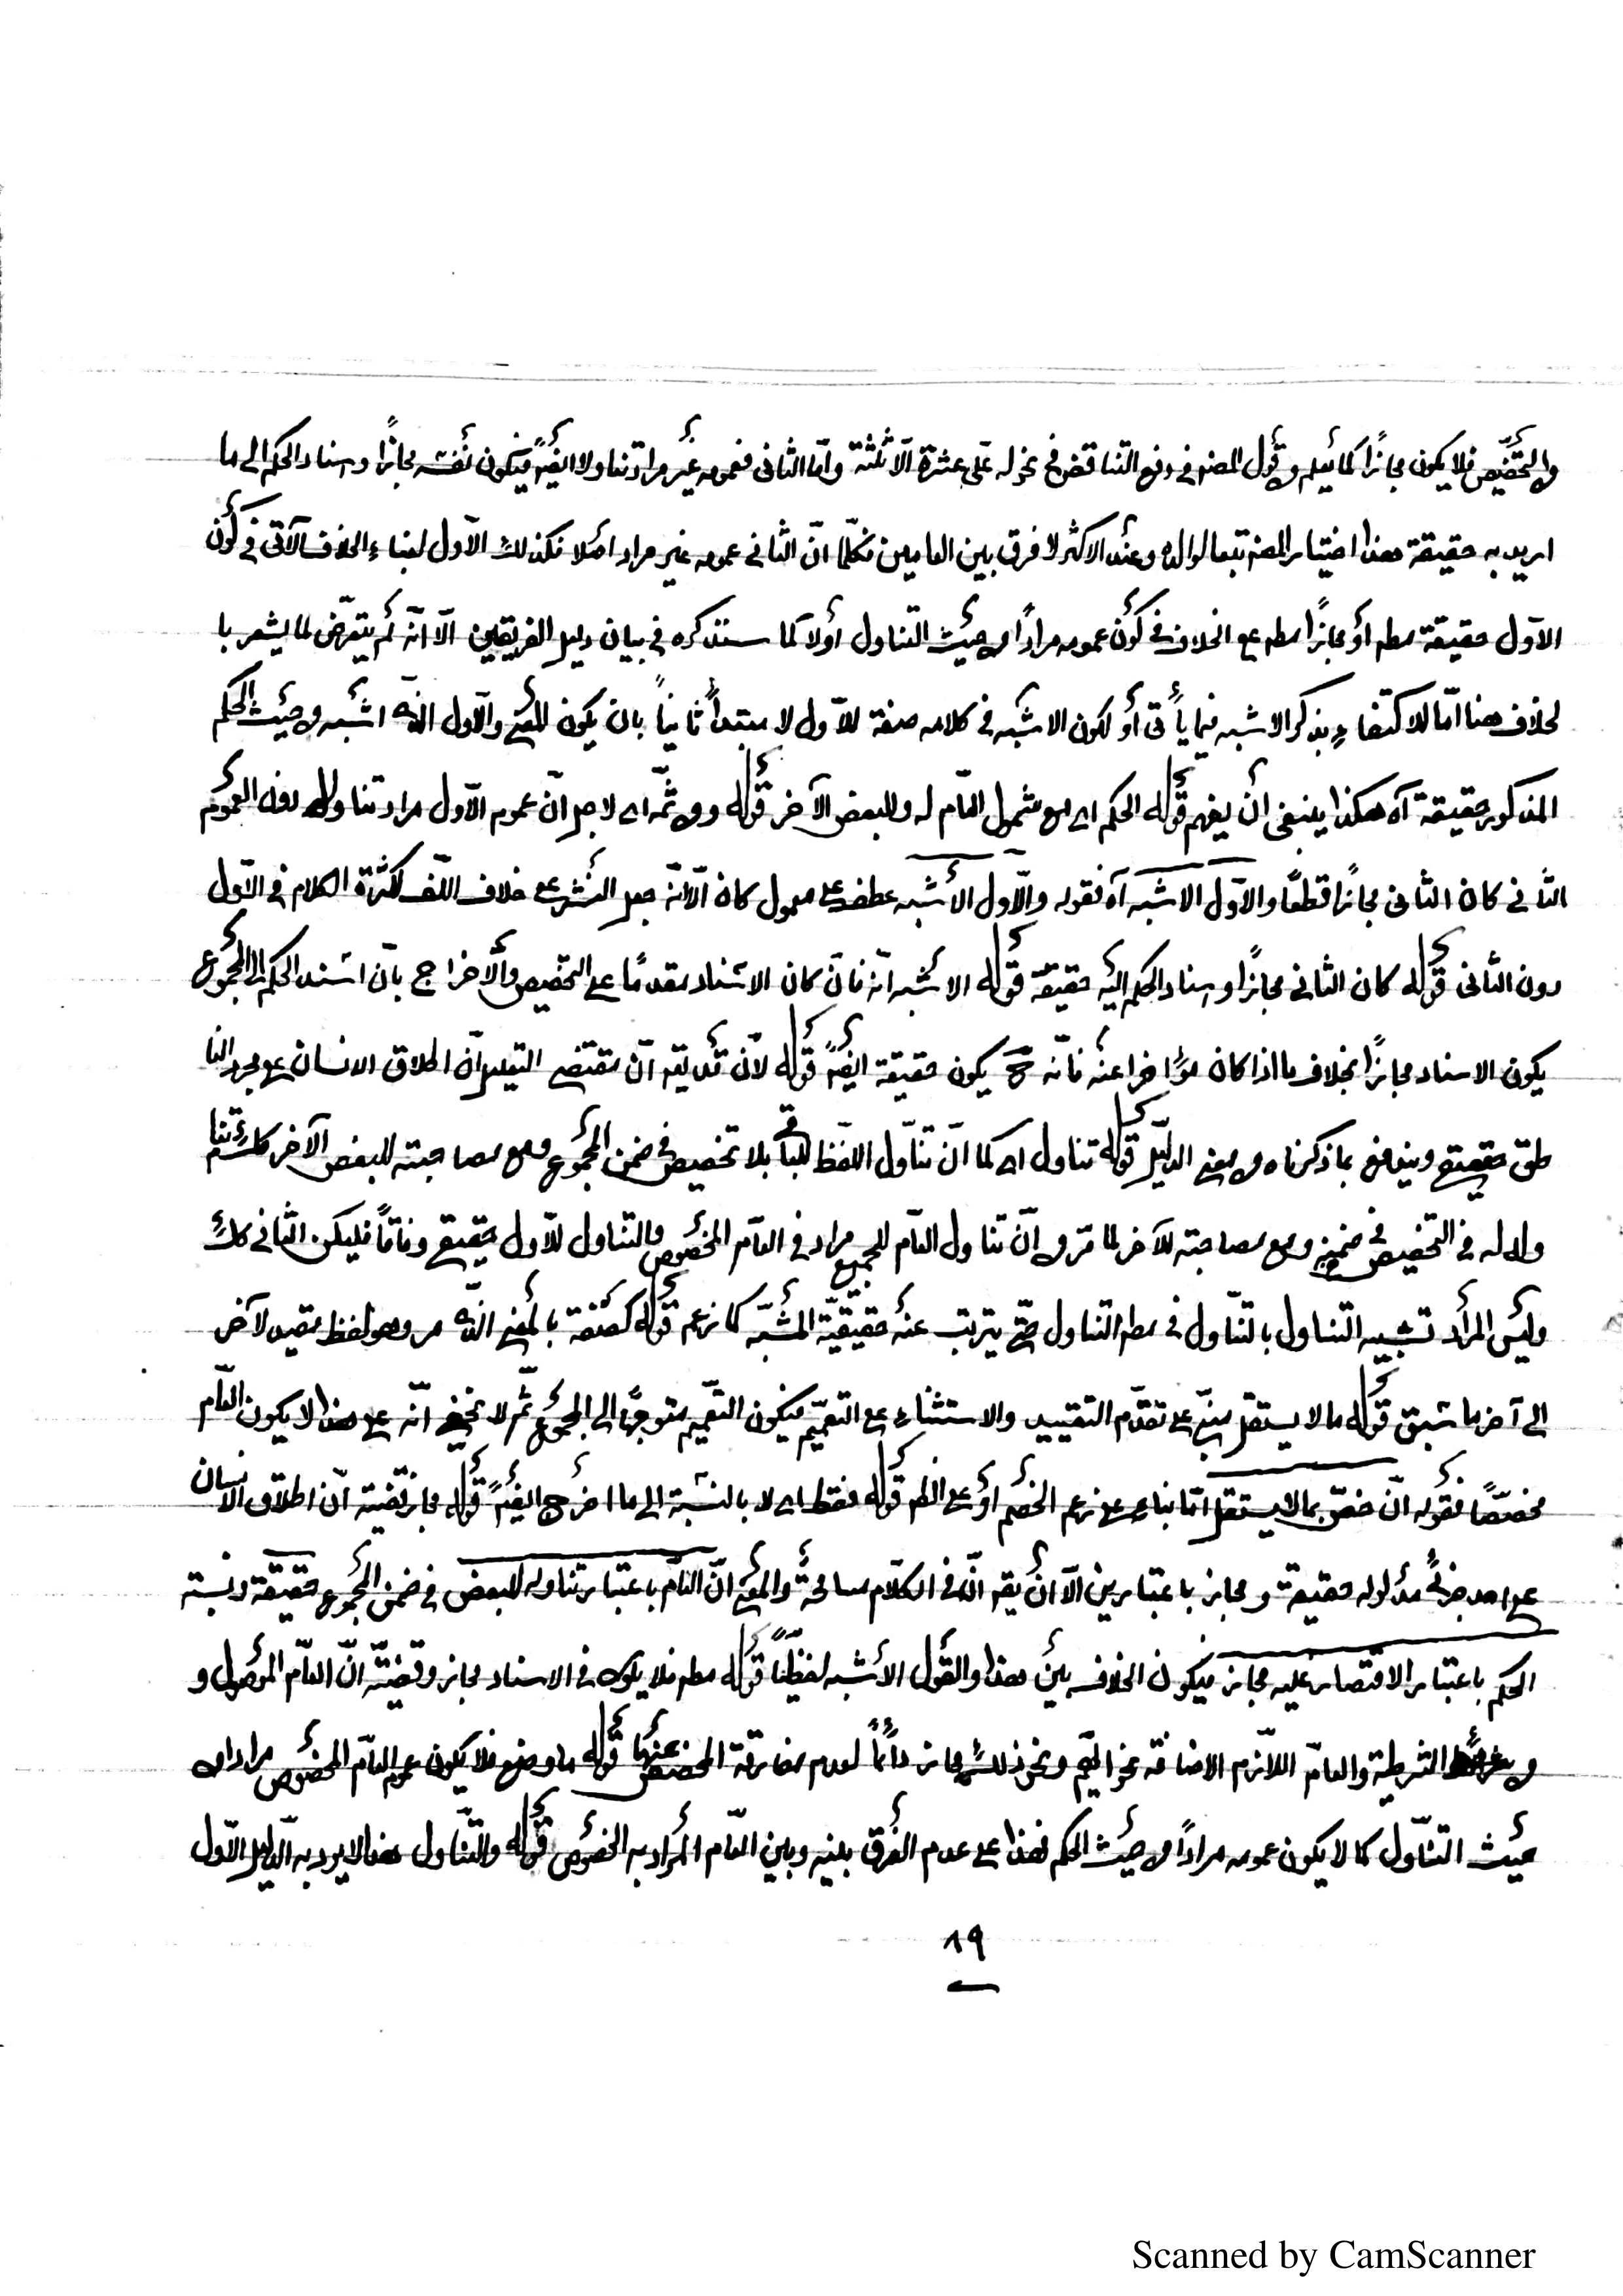 والتخصيص فلا يكون مجازا كما يعلم من قول المصنف في دفع التناقض في نحو له علي عشرة الا ثلثة واما الثاني فعمومه غير مراد تناولا ايضا فيكون نفسه مجازا واسناد الحكم الى ما
اريد به حقيقة هذا اختيار المصنف تبعا لوالده وعند الاكثر لا فرق بين العامين فكما ان الثاني عمومه غير مراد اصلا فكذلك الاول لبناء الخلاف الآتي في كون
الاول حقيقة مطم أو مجازا مطم على الخلاف في كون عمومه مرادا من حيث التناول أولا كما سنذكره في بيان دليل الفريقين الا انه لم يتعرض لما يشعر با
لخلاف هنا اما للاكتفاء بذكر الاشبه فيما يأتي أو لكون الاشبه في كلامه صفة للاول لا مبتدأ ثانيا بان يكون المعنى والاول الذي اشبه من حيث الحكم
المذكور حقيقة آه هكذا ينبغي أن يفهم قوله الحكم اي مع شمول العام له وللبعض الآخر قوله ومن ثمه اي لاجل ان عموم الاول مراد تناوله دون العموم
الثاني كان الثاني مجازا قطعا والاول الاشبه آه فقوله والاول الأشبه عطف على معمول كان الا انه جعل النشر على خلاف اللف لكثرة الكلام في الاول
دون الثاني قوله كان الثاني مجازا واسناد الحكم اليه حقيقة قوله الاشبه انه فان كان الاسناد مقدما على التخصيص والاخراج بان اسند الحكم الى المجموع
يكون الاسناد مجازا بخلاف ما اذا كان مؤاخرا عنه فانه ح يكون حقيقة ايضا قوله لان قضيته ان مقتضى التعليل ان اطلاق الانسان على مجرد النا
طق حقيقي ويندفع بما ذكرناه من معنى الدليل قوله تناول اي كما ان تناول اللفظ للباقي بلا تخصيص في ضمن المجموع ومع مصاحبته للبعض الآخر كذلك تنا
وله له في التخصيص في ضمنه ومع مصاحبته للآخر لما مر من ان تناول العام للجميع مراد في العام المخصوص والتناول للاول حقيقي وفاقا فليكن الثاني كذلك
وليس المراد تشبيه التناول بالتناول في مطم التناول حتى يترتب عنه حقيقية المشبه كما زعم قوله كصفة بالمعنى الذي مر وهو لفظ مقيد لآخر
الى آخر ما سبق قوله ما لا يستقل مبني على تقدم التقييد والاستثناء على التعميم فيكون التعميم متوجها الى المجموع ثم لا يخفى انه على هذا لا يكون العام
مخصصا فقوله ان خص بما لا يستقل اما بناء على زعم الخصم او على الظم قوله فقط اي لا بالنسبة الى ما اخرج ايضا قوله مجاز قضيته ان اطلاق الانسان
على احد جزئي مدلوله حقيقة ومجاز باعتبارين الا أن يقم انه في الكلام مسامحة والمعنى ان العام باعتبار تناوله للبعض في ضمن المجموع حقيقة ونسبة
الحكم باعتبار الاقتصار عليه مجاز فيكون الخلاف بين هذا والقول الأشبه لفظيا قوله مطم فلا يكون في الاسناد مجاز وقضيته ان العام الموصول و
من الشرطية والعام اللازم الاضافة نحو ونحو ذلك مجاز دائما لعدم مفارقة المخصص عنها قوله ما وضع فلا يكون عموم العام المخصوص مرادا من
حيث التناول كما لا يكون عمومه مرادا من حيث الحكم فهذا على عدم الفرق بينه وبين العام المراد به الخصوص قوله والتناول هذا لا يرد به الدليل الاول
٨٩
Scanned by CamScanner